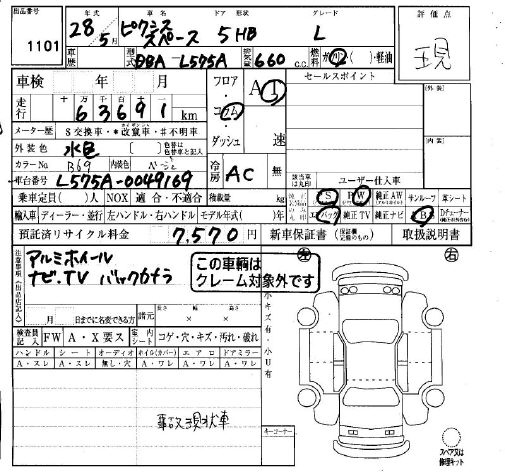 出品番号 年式 車名 ドア 形状 グレード 評価点
1101 28年5月 ピクシススペース 5HB L 現
車歴 型式 DBA-L575A 排気量 660 c.c. 燃料 ガソリン・( )・軽油
車検 年 月 フロア・コラム・ダッシュ A I 速 セールスポイント (外装)
走行 十万 万 千 百 十 一 63691 km
メーター歴 $ 交換車・* 改竄車・# 不明車
外装色 水色 [ ] 色替は色替車と記入 (内装)
カラーNo B69 内装色 ベージュ 冷房 AC 無 該当車は丸印 ユーザー仕入車
車台番号 L575A-0049169
乗車定員( )人 NOX 適合・不適合 積載量 kg PS PW 純正AW サンルーフ 革シート
輸入車 ディーラー・並行 左ハンドル・右ハンドル モデル年式( )年 エアバック 純正TV 純正ナビ
預託済リサイクル料金 7,570 円 新車保証書 取扱説明書
注意事項(出品店記入) アルミホイール
ナビ.TV バックカメラ
この車輌は
クレーム対象外です
左 右
月 日までに名変できる方 諸元 長 幅 高
検査員記入 FW A・X 要ス 室内シート コゲ・穴・キズ・汚れ・破れ
ハンドル シート オーディオ ホイル(カバー) エアロ ドアミラー
A・スレ A・スレ 無し・穴 A・ワレ A・ワレ A・ワレ
小キズ有・小U有
事故現状車
キーコーナー
スペア又は
修理キット